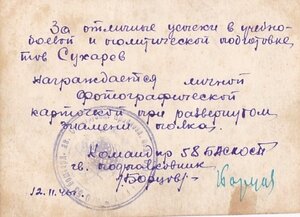 За отличные успехи в учебно-
боевой и политической подготовке,
тов Сухарев
награждается личной
фотографической
карточкой при развернутом
знамени полка.
Командир 58
гв. подполковник
/Борцов/
12.11.46г.